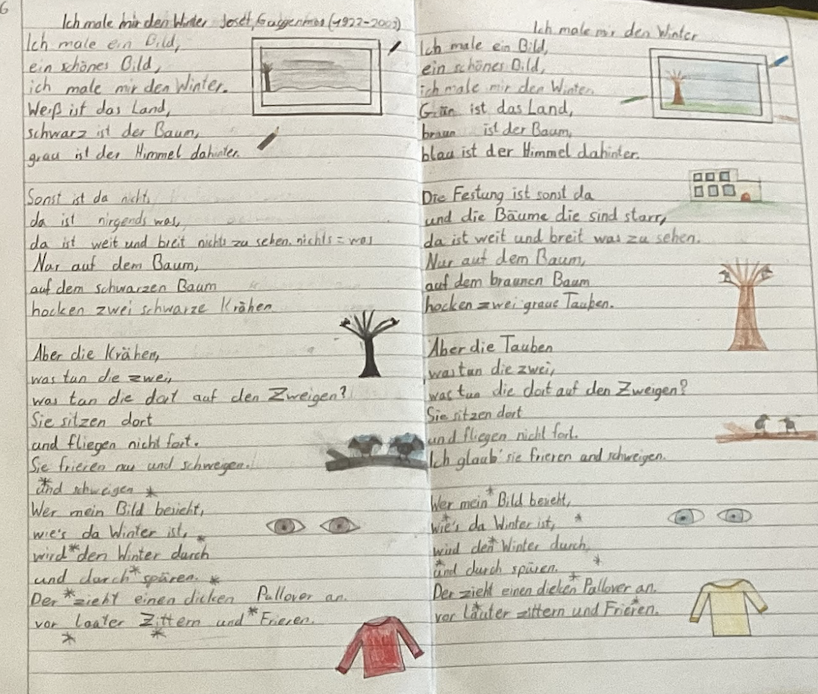 6
Ich male mir den Winter Josef Guggenmos (1922-2003)
Ich male ein Bild,
ein schönes Bild,
ich male mir den Winter.
Weiß ist das Land,
schwarz ist der Baum,
grau ist der Himmel dahinter.
Sonst ist da nichts,
da ist nirgends was,
da ist weit und breit nichts zu sehen. nichts = was
Nur auf dem Baum,
auf dem schwarzen Baum
hocken zwei schwarze Krähen
Aber die Krähen,
was tun die zwei,
was tun die dort auf den Zweigen?
Sie sitzen dort
und fliegen nicht fort.
Sie frieren nur und schwegen.
und schweigen
Wer mein Bild besieht,
wie's da Winter ist,
wird den Winter durch
und durch spüren.
Der zieht einen dicken Pullover an.
vor lauter Zittern und Frieren.
Ich male mir den Winter
Ich male ein Bild,
ein schönes Bild,
ich male mir den Winter.
Grün ist das Land,
braun ist der Baum,
blau ist der Himmel dahinter.
Die Festung ist sonst da
und die Bäume die sind starr,
da ist weit und breit was zu sehen.
Nur auf dem Baum,
auf dem braunen Baum
hocken zwei graue Tauben.
Aber die Tauben
was tun die zwei,
was tun die dort auf den Zweigen?
Sie sitzen dort
und fliegen nicht fort.
Ich glaub' sie frieren und schweigen.
Wer mein Bild besieht,
wie's da Winter ist,
wird den Winter durch,
und durch spüren.
Der zieht einen dicken Pullover an.
vor lauter zittern und Frieren.